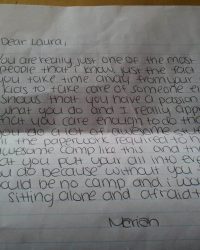 Dear Laura,
You are really just one of the most
people that I know. Just the fact
you take time away from your
kids to take care of someone el
shows that you have a passion
what you do and I really app
that you care enough to do th
do a lot of awesome
all the paperwork required to
awesome camp like this and
at you put your all into ev
u do because without you
ould be no camp and I wo
sitting alone and afraid t